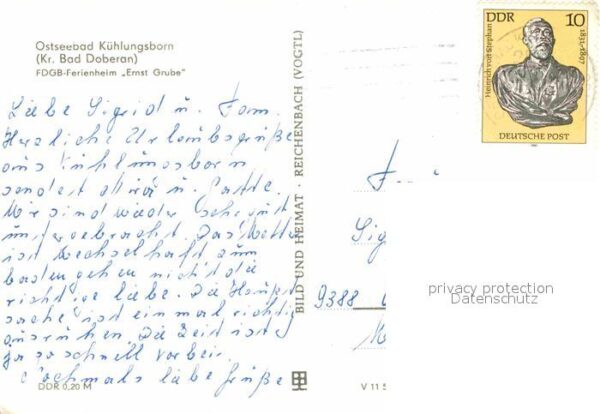 Ostseebad Kühlungsborn
(Kr. Bad Doberan)
FDGB-Ferienheim „Ernst Grube"
Liebe Sigrid u. Fam.
Herzliche Urlaubsgrüße
aus Kühlungsborn
sendet u.
Wir sind wieder sehr gut
untergebracht. Das Wetter
ist wechselhaft, zum
baden gehen nicht die
richtige liebe. Die Haupt
sache ist einmal richtig
ausruhen. Die Zeit ist
ja so schnell vorbei.
Nochmals liebe Grüße
DDR 0,20 M
BILD UND HEIMAT · REICHENBACH (VOGTL)
V 11 5
DDR 10
Heinrich von Stephan
1831-1897
DEUTSCHE POST
Sig
9388
privacy protection
Datenschutz